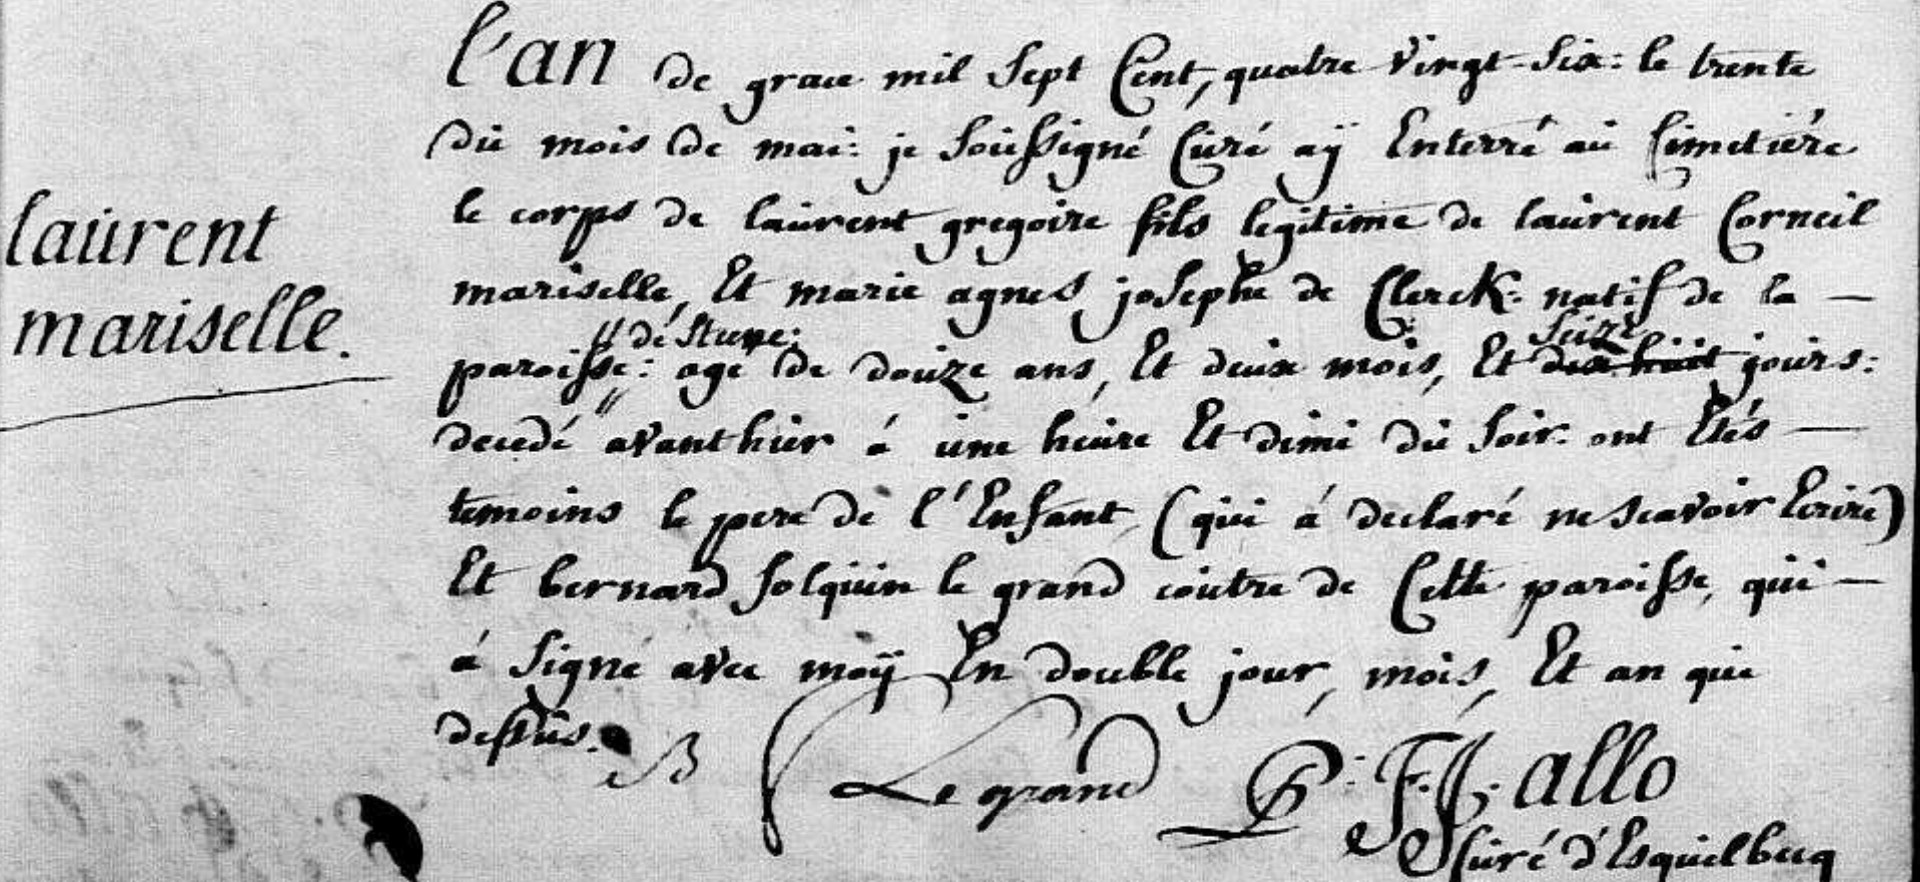 l'an de grace mil sept Cent, quatre vingt-six: le trente
du mois de mai: je soussigné Curé aÿ Enterré au Cimetiére
le corps de laurent gregoire fils legitime de laurent Corneil
laurent
mariselle, Et marie agnes josephe de Clerck: natif de la —
mariselle.
" de Steene: seize
paroisse: agé de douze ans, Et deux mois, Et dix huit jours:
decedé " avanthier á une heure Et dimi du soir: ont Etés —
temoins le pere de l'Enfant, (qui á declaré ne scavoir Ecrire)
Et bernard folquin le grand coutre de Cette paroisse, qui —
á signé avec moÿ En double jour, mois, Et an que
dessus.
B Le grand P: F: J: allo
Curé d'Esquelbecq